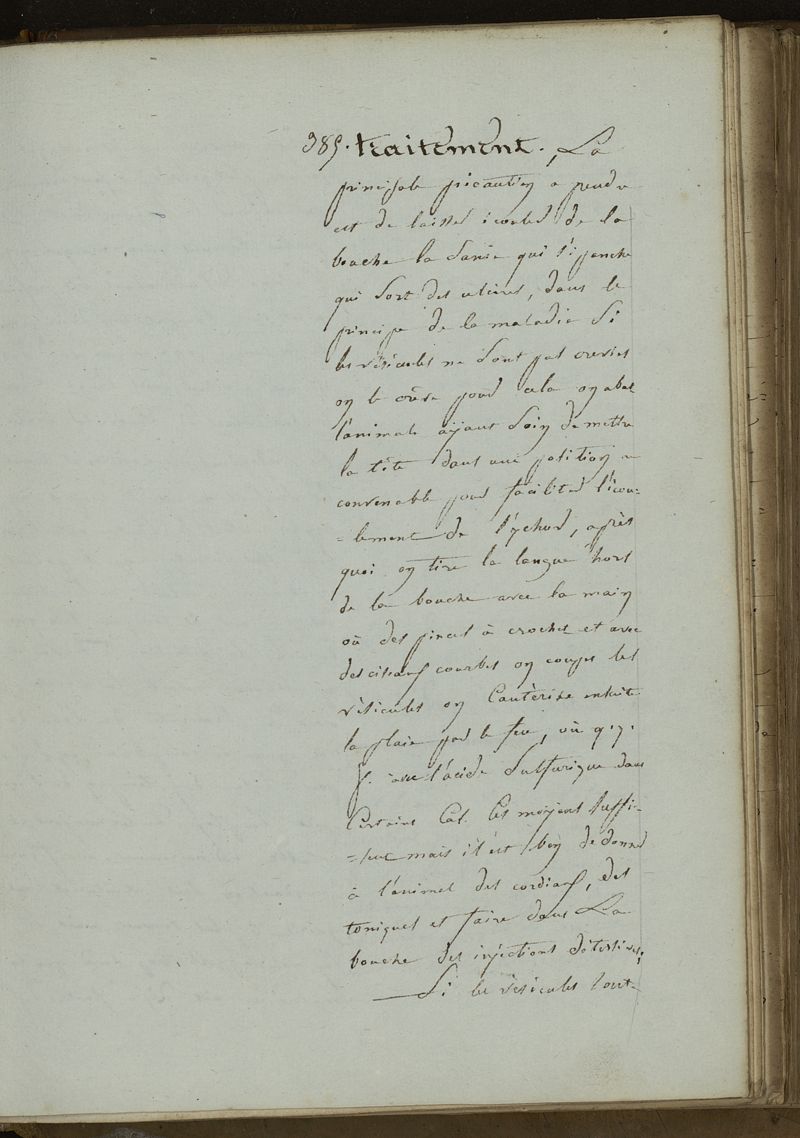 385. traitement. La
principale précaution a prendre
est de laisser écouler de la
bouche la Sanie qui s'épanche
qui Sort des ulcères, dans le
principe de la maladie Si
les vésicules ne Sont pas ouvertes
on le ouvre pour cela on abat
l'animale ayant Soin de mettre
la tête dans une position
convenable pour faciliter l'écou-
=lement de l'ychor, après
quoi on tire la langue hors
de la bouche avec la main
où des pinces à crochet et avec
des ciseaux courbes on coupe les
vésicules on Cautérise ensuite
la plaie par le feu, où q.q.
f. avec l'acide Sulfurique dans
Certains Cas. Ces moyens suffi-
=sent mais il est bon de donner
à l'animal des cordiaux, des
toniques et faire dans La
bouche des injections détersives;
Si les vésicules sont